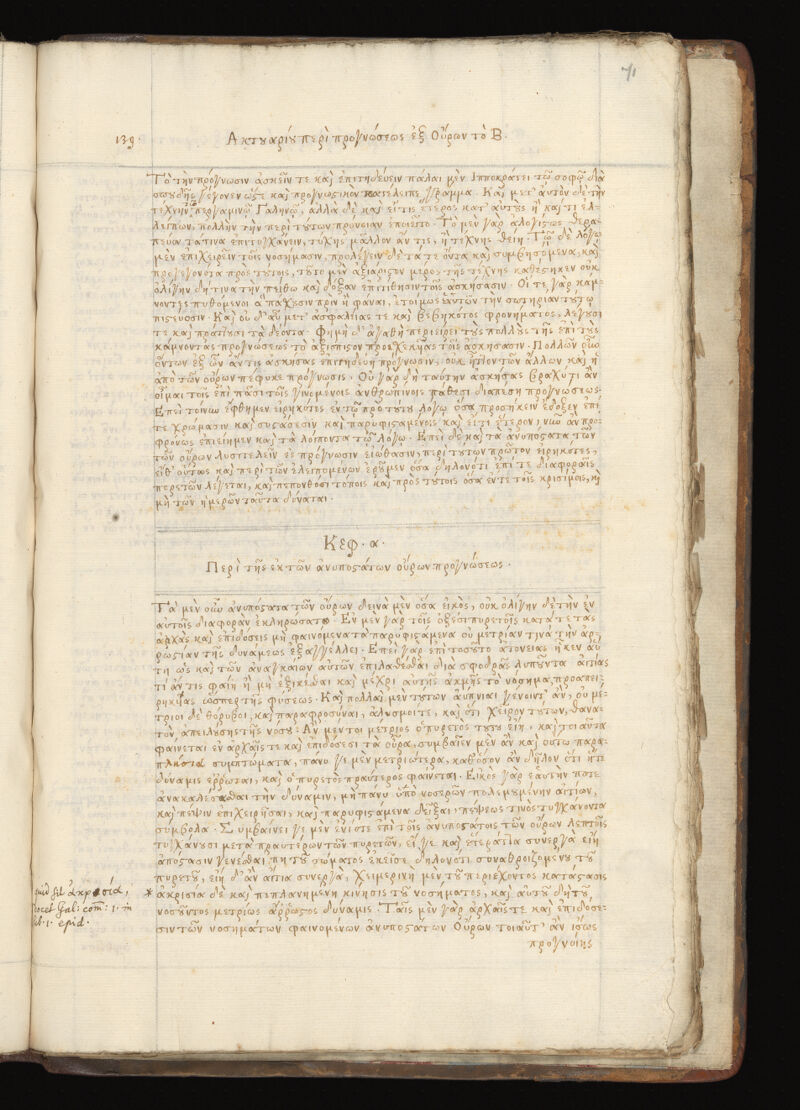 71
139.
Ακτουαρίου περὶ προγνώσεως ἐξ Οὔρων τὸ Β.
Τὸ τὴν πρόγνωσιν ἀσκεῖν τε καὶ ἐπιτηδεύειν πάλαι μὲν Ἱπποκράτει τῶ σοφῶ διὰ
σπουδῆς γέγονεν ὥστε καὶ προγνωστικὸν κατέλειπε γράμμα. Καὶ μετ' αὐτὸν δὲ τὴν
τέχνην περγαμινῶ Γαληνῶ, ἀλλὰ δὲ καὶ εἴ τις ἕτερος κατ' αὐτοὺς ἢ καί τι ἐλ-
λείπων, πολλὴν τὴν περὶ τούτων πρόνοιαν ἐποιεῖτο. Τὸ μὲν γὰρ ἀλόγως θερα-
πεύοντα τινὰ ἐπιτυγχάνειν, τύχης μᾶλλον ἄν τις, ἢ τέχνης θείη. Τῶ δὲ λόγω
μὲν ἐπιχειρεῖν τοῖς νοσήμασιν, προλέγειν δὲ τά τε ὄντα καὶ συμβησόμενα, καὶ
προγεγονότα πρὸς τούτοις, τοῦτο μὲν ἀξιάριστον μέρος τῆς τέχνης καθέστηκεν οὐκ
ὀλίγην δή τινα τὴν πειθὼ καὶ δόξαν ἐπιτιθησιν τοῖς ἀσκήσασιν. Οἵ τε γὰρ κάμ-
νοντες πυθόμενοι ἃ πάσχουσιν πρὶν ἢ φάναι, ἑτοίμως ἑαυτῶν τὴν σωτηρίαν τούτω
πιστεύουσιν. Καὶ οὐ δ' αὖ μετ' ἀσφαλείας τε καὶ βεβηκότος φρονήματος, λέγουσί
τε καὶ πράττουσι τὰ δέοντα. Φημὶ δ' ἀγαθὴ περιαίρει τοὺς πολλοὺς τῆς ἐπὶ τοὺς
κάμνοντας προγνώσεως τὸ ἀξιόπιστον προσεχεύσας τοῖς ἀσκήσασιν. Πολλῶν οὖν
ὄντων ἐξ ὧν ἄν τις ἀσκήσας ἐπιτηδεύη πρόγνωσιν, οὐκ ἧττον τῶν ἄλλων καὶ ἡ
ἀπὸ τῶν οὔρων πέφυκε πρόγνωσις. Οὐ γὰρ δὴ ταύτην ἀσκήσας βραχύ τι ἂν
οἶμαι τοῖς ἐπὶ πᾶσι τοῖς γινομένοις ἀνθρωπίνοις πάθεσι διαπέση προγνώσεως.
Ἐπεὶ τοίνυν ἔφθημεν εἰρηκότες ἐν τῶ πρὸ τούτου λόγω ὅσα προσήκειν ἔδοξεν ἐπί
τε χρώμασιν καὶ συστάσεσιν καὶ παρυφισταμένοις καὶ εἴ τι ἕτερον, νῦν ἂν προ-
φρόνως ἐπίειημεν καὶ τὰ λοίποντα τῶ λόγω. Ἐπεὶ δὲ καὶ τὰ ἀνυπόστατα τῶν
τῶν οὔρων λυσιτελεῖν ἐς πρόγνωσιν εἰώθασιν, περὶ τούτων πρῶτον εἰρηκότες,
εἶθ' οὕτως καὶ περὶ τῶν ἐλλειπομένων ἐροῦμεν ὅσα δηλονότι ἐπί τε διαφοραῖς
πυρετῶν λέγεται, καὶ πεπονθόσι τόποις καὶ πρὸς τούτοις ὅσα ἔν τε τοῖς κρισίμοις, καὶ
μὴ τῶν ἡμερῶν ταῦτα δύναται.
Κεφ. α.
Περὶ τῆς ἐκ τῶν ἀνυποστάτων οὔρων προγνώσεως.
Τὰ μὲν οὖν ἀνυπόστατα τῶν οὔρων δεινὰ μὲν ὅσα εἰκὸς, οὐκ ὀλίγην δὲ τὴν ἐν
αὐτοῖς διαφορὰν ἐκληρώσατο. Ἐν μὲν γὰρ τοῖς ὀξέσι πυρετοῖς κατά τε τὰς
ἀρχὰς καὶ ἐπιδόσεις μὴ φαινόμενα τὰ παρυφιστάμενα οὐ μετρίαν τινὰ τὴν ἀρ-
ρωστίαν τῆς δυνάμεως ἐξαγγέλλει. Ἐπεὶ γὰρ ἐπὶ τοσοῦτο ἀτονείας ἧκεν αὐ-
τὴ ὡς καὶ τῶν ἀναγκαίων αὐτῶν ἐπιλαθέσθαι διὰ σφοδρὰς λυπούντα αἰτίας
τί ἄν τις φαίη ἢ μὴ ἐξικέσθαι καὶ μέχρι αὐτῆς ἀκμῆς τὸ νόσημα, προαπει-
ρηκυίας ὥσπερ τῆς φύσεως. Καὶ πολλαὶ μὲν τούτων ἀϋπνίαι γένοιντ' ἂν, οὐ μέ-
τριοι δὲ θόρυβοι, καὶ παραφροσύναι, ἀλυσμοί τε, καὶ ὅτι χεῖρον τούτων, θάνα-
τον ἀπειλούσης τῆς νόσου. Ἂν μέντοι μέτριος ὁ πυρετὸς τούτου εἴη, καὶ τοιαῦτα
φαίνεται ἐν ἀρχαῖς τε καὶ ἐπιδόσεσι τὰ οὖρα, συμβαίεν μὲν ἂν καὶ οὕτω παρα-
πλήσια συμπτώματα, πάνυ γε μὲν μετριώτερα, καθόσον ἂν δῆλον ὅτι ἥ τε
δύναμις ἔρρωται, καὶ ὁ πυρετὸς πραότερος φαίνεται. Εἰκὸς γὰρ ἑαυτήν ποτε
ἀνακαλέσασθαι τὴν δύναμιν, μὴ πάνυ ὑπὸ νοσερῶν πολεμουμένην αἰτίων,
καὶ πέψιν ἐπιχειρῆσαι, καὶ παρυφιστάμενα δεῖξαι, πέψεως τινὸς τυγχάνοντα
σύμβολα. Συμβαίνει γε μὲν ἐνίοτε ἐπὶ τοῖς ἀνυποστάτοις τῶν οὔρων λεπτοῖς
τυγχάνουσι μετὰ πραοτέρων τῶν πυρετῶν, εἴ γε καὶ ἕτερ' αἴτια συνεργὰ εἴη
ἀπόστασιν γενέσθαι πῆ τοῦ σώματος ἐκεῖσε δηλονότι συναθροιζομένου τοῦ
πυρετοῦ, εἴη δ' ἂν αἴτια συνεργὰ, χειμερινὴ μὲν τοῦ περιέχοντος κατάστασις
* ἀκρισία δὲ καὶ πεπλανημένη κίνησις τοῦ νοσήματος, καὶ αὐτοῦ δὴ τοῦ
νοσοῦντος μετρίως ἄρρωστος δύναμις. Ταῖς μὲν γὰρ ἀρχαῖς τε καὶ ἐπιδόσε-
σιν τῶν νοσημάτων φαινομένων ἀνυποστάτων Οὔρων τοιαῦτ' ἂν ἴσως
προγνοίης
quid sit ἀκρισία,
docet Gal: com: 1. in
lib. 1. epid.